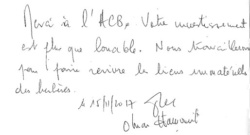 Merci à l'ACB. Votre investissement
est plus que louable. Nous travaillerons
pour faire revivre le lien immatériel
des berbères.
le 15/11/2017
Omar